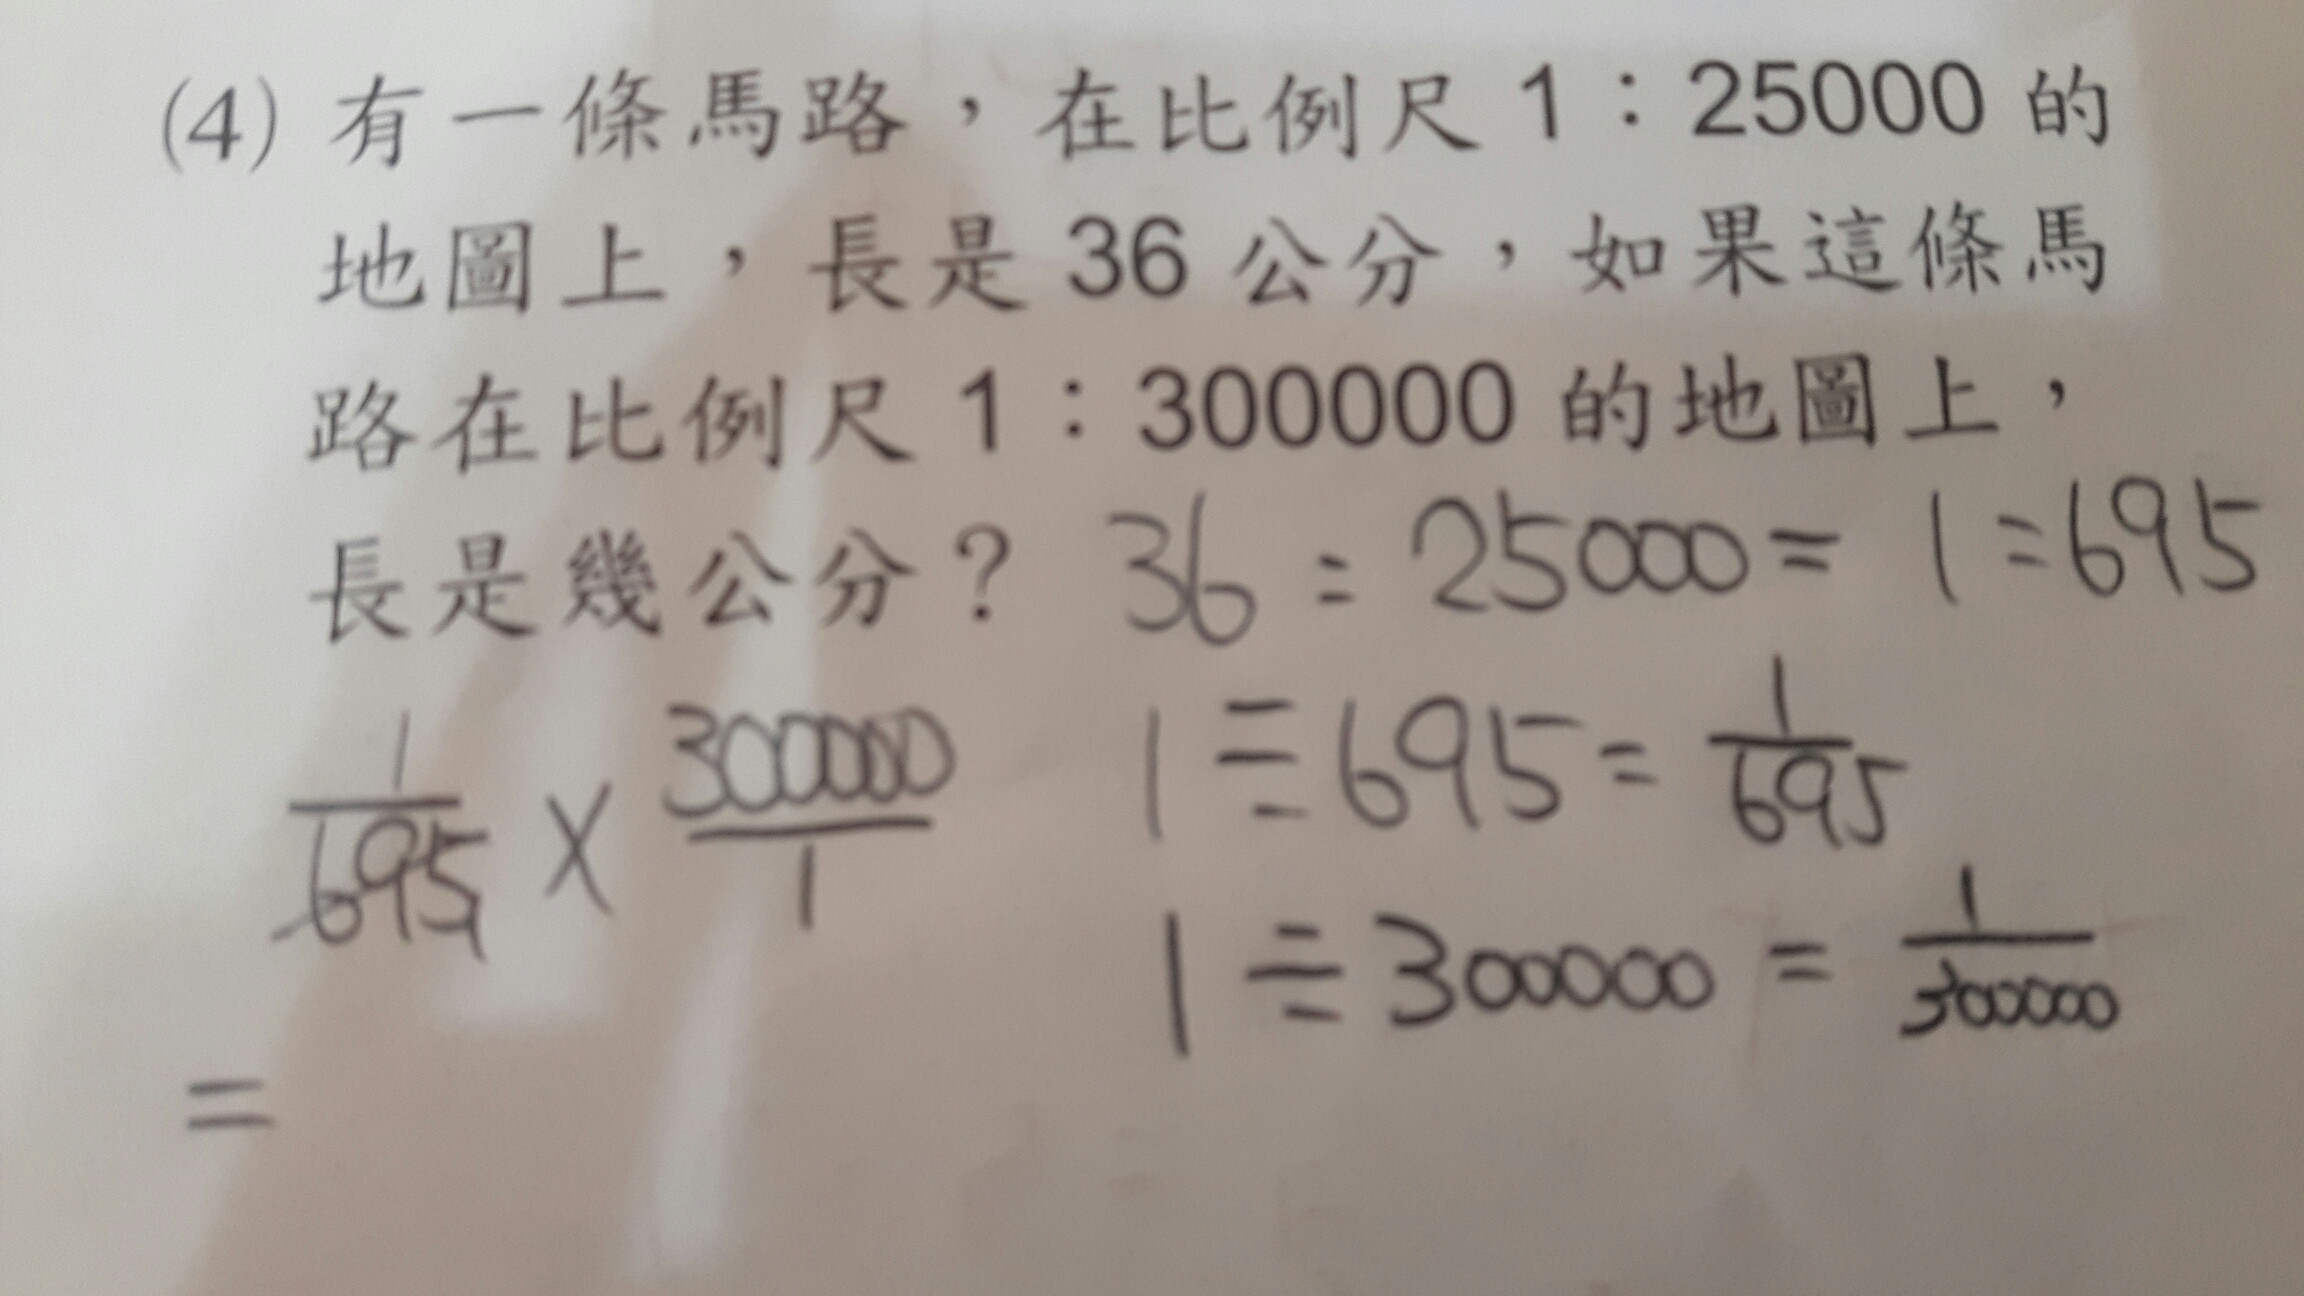 (4) 有一條馬路，在比例尺 1：25000 的
地圖上，長是 36 公分，如果這條馬
路在比例尺 1：300000 的地圖上，
長是幾公分？ 36 : 25000 = 1 : 695
1/695 × 300000/1
1 ÷ 695 = 1/695
1 ÷ 300000 = 1/300000
=